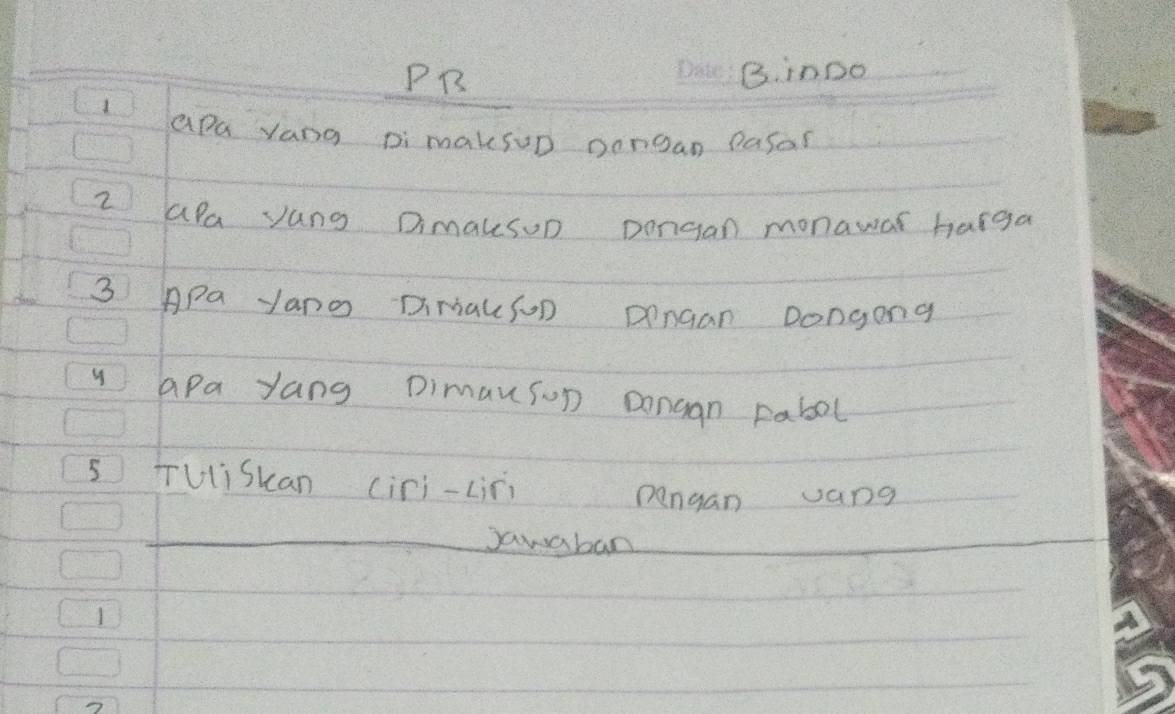 PR Date: B.inDo
1 apa yang Dimaksud Dengan Pasar
2 apa yang Dimaksud Dengan menawar Harga
3 Apa yang Dimaksud Dengan Dongeng
4 apa yang Dimaksud Dengan Fabel
5 Tuliskan ciri-ciri Dengan uang
Jawaban
1
2